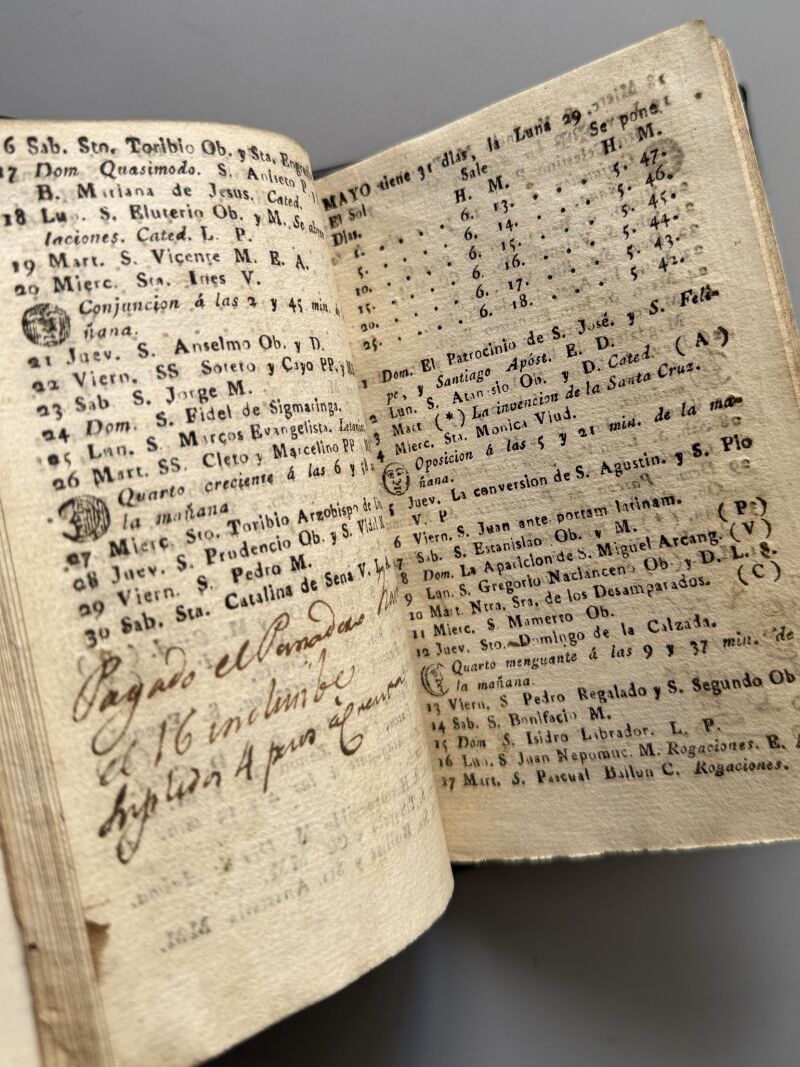 6 Sab. Sto. Toribio Ob. y Sta.
17 Dom Quasimodo. S. Aniseto P.
B. Mariana de Jesus. Cated.
18 Lun. S. Eluterio Ob. y M. Se abren
laciones. Cated. L. P.
19 Mart. S. Vicente M. E. A.
20 Mierc. Sta. Ines V.
Conjuncion á las 2 y 45 min.
ñana.
21 Juev. S. Anselmo Ob. y D.
22 Viern. SS Sotero y Cayo PP. y
23 Sab S. Jorge M.
24 Dom. S. Fidel de Sigmaringa.
25 Lun. S. Marcos Evangelista.
26 Mart. SS. Cleto y Marcelino PP
Quarto creciente á las 6 y
la mañana
27 Mierc Sto. Toribio Arzobispo de
28 Juev. S. Prudencio Ob. y S. Vidal M.
29 Viern. S. Pedro M.
30 Sab. Sta. Catalina de Sena V.
Pagado el Panadero
el 16 inclusibe
4
MAYO tiene 31 dias, la Luna 29.
El Sol Sale Se pone
Dias. H. M. H. M.
1. . . . . . 6. 13. . . . . 5. 47.
5. . . . . . 6. 14. . . . . 5. 46.
10. . . . . . 6. 15. . . . . 5. 45.
15. . . . . . 6. 16. . . . . 5. 44.
20. . . . . . 6. 17. . . . . 5. 43.
25. . . . . . 6. 18. . . . . 5. 42.
1 Dom. El Patrocinio de S. José. y S. Feli-
pe, y Santiago Apóst. E. D.
2 Lun. S. Atanasio Ob. y D. Cated. (A)
3 Mart (*) La invencion de la Santa Cruz.
4 Mierc. Sta. Monica Viud.
Oposicion á las 5 y 21 min. de la ma-
ñana.
5 Juev. La conversion de S. Agustin. y S. Pio
V. P
6 Viern. S. Juan ante portam latinam.
7 Sab. S. Estanislao Ob. y M. (P)
8 Dom. La Aparicion de S. Miguel Arcang. (V)
9 Lun. S. Gregorio Nacianceno Ob y D. L. S.
10 Mart Ntra. Sra. de los Desamparados. (C)
11 Mierc. S Mamerto Ob.
12 Juev. Sto. Domingo de la Calzada.
Quarto menguante á las 9 y 37 min. de
la mañana.
13 Viern. S Pedro Regalado y S. Segundo Ob
14 Sab. S. Bonifacio M.
15 Dom S. Isidro Labrador. L. P.
16 Lun. S Juan Nepomuc. M. Rogaciones. E.
17 Mart. S. Pascual Bailon C. Rogaciones.